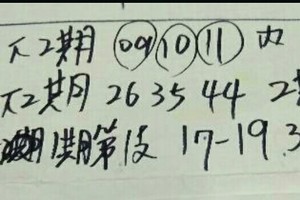 下2期 09 10 11 内
下2期 26 35 44 2
期 1期第后 17-19.3